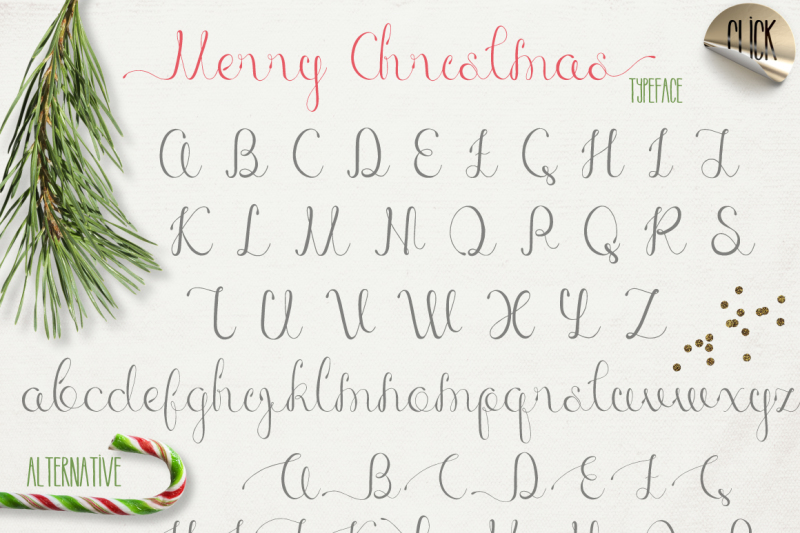 CLICK
Merry Christmas
TYPEFACE
A B C D E F G H I J
K L M N O P Q R S
T U V W X Y Z
abcdefghijklmnopqrstuvwxyz
ALTERNATIVE
A B C D E F G